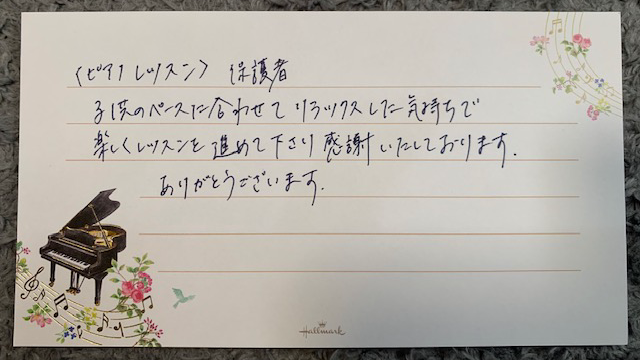 〈ピアノレッスン〉 保護者
子供のペースに合わせてリラックスした気持ちで
楽しくレッスンを進めて下さり感謝いたしております.
ありがとうございます.
Hallmark